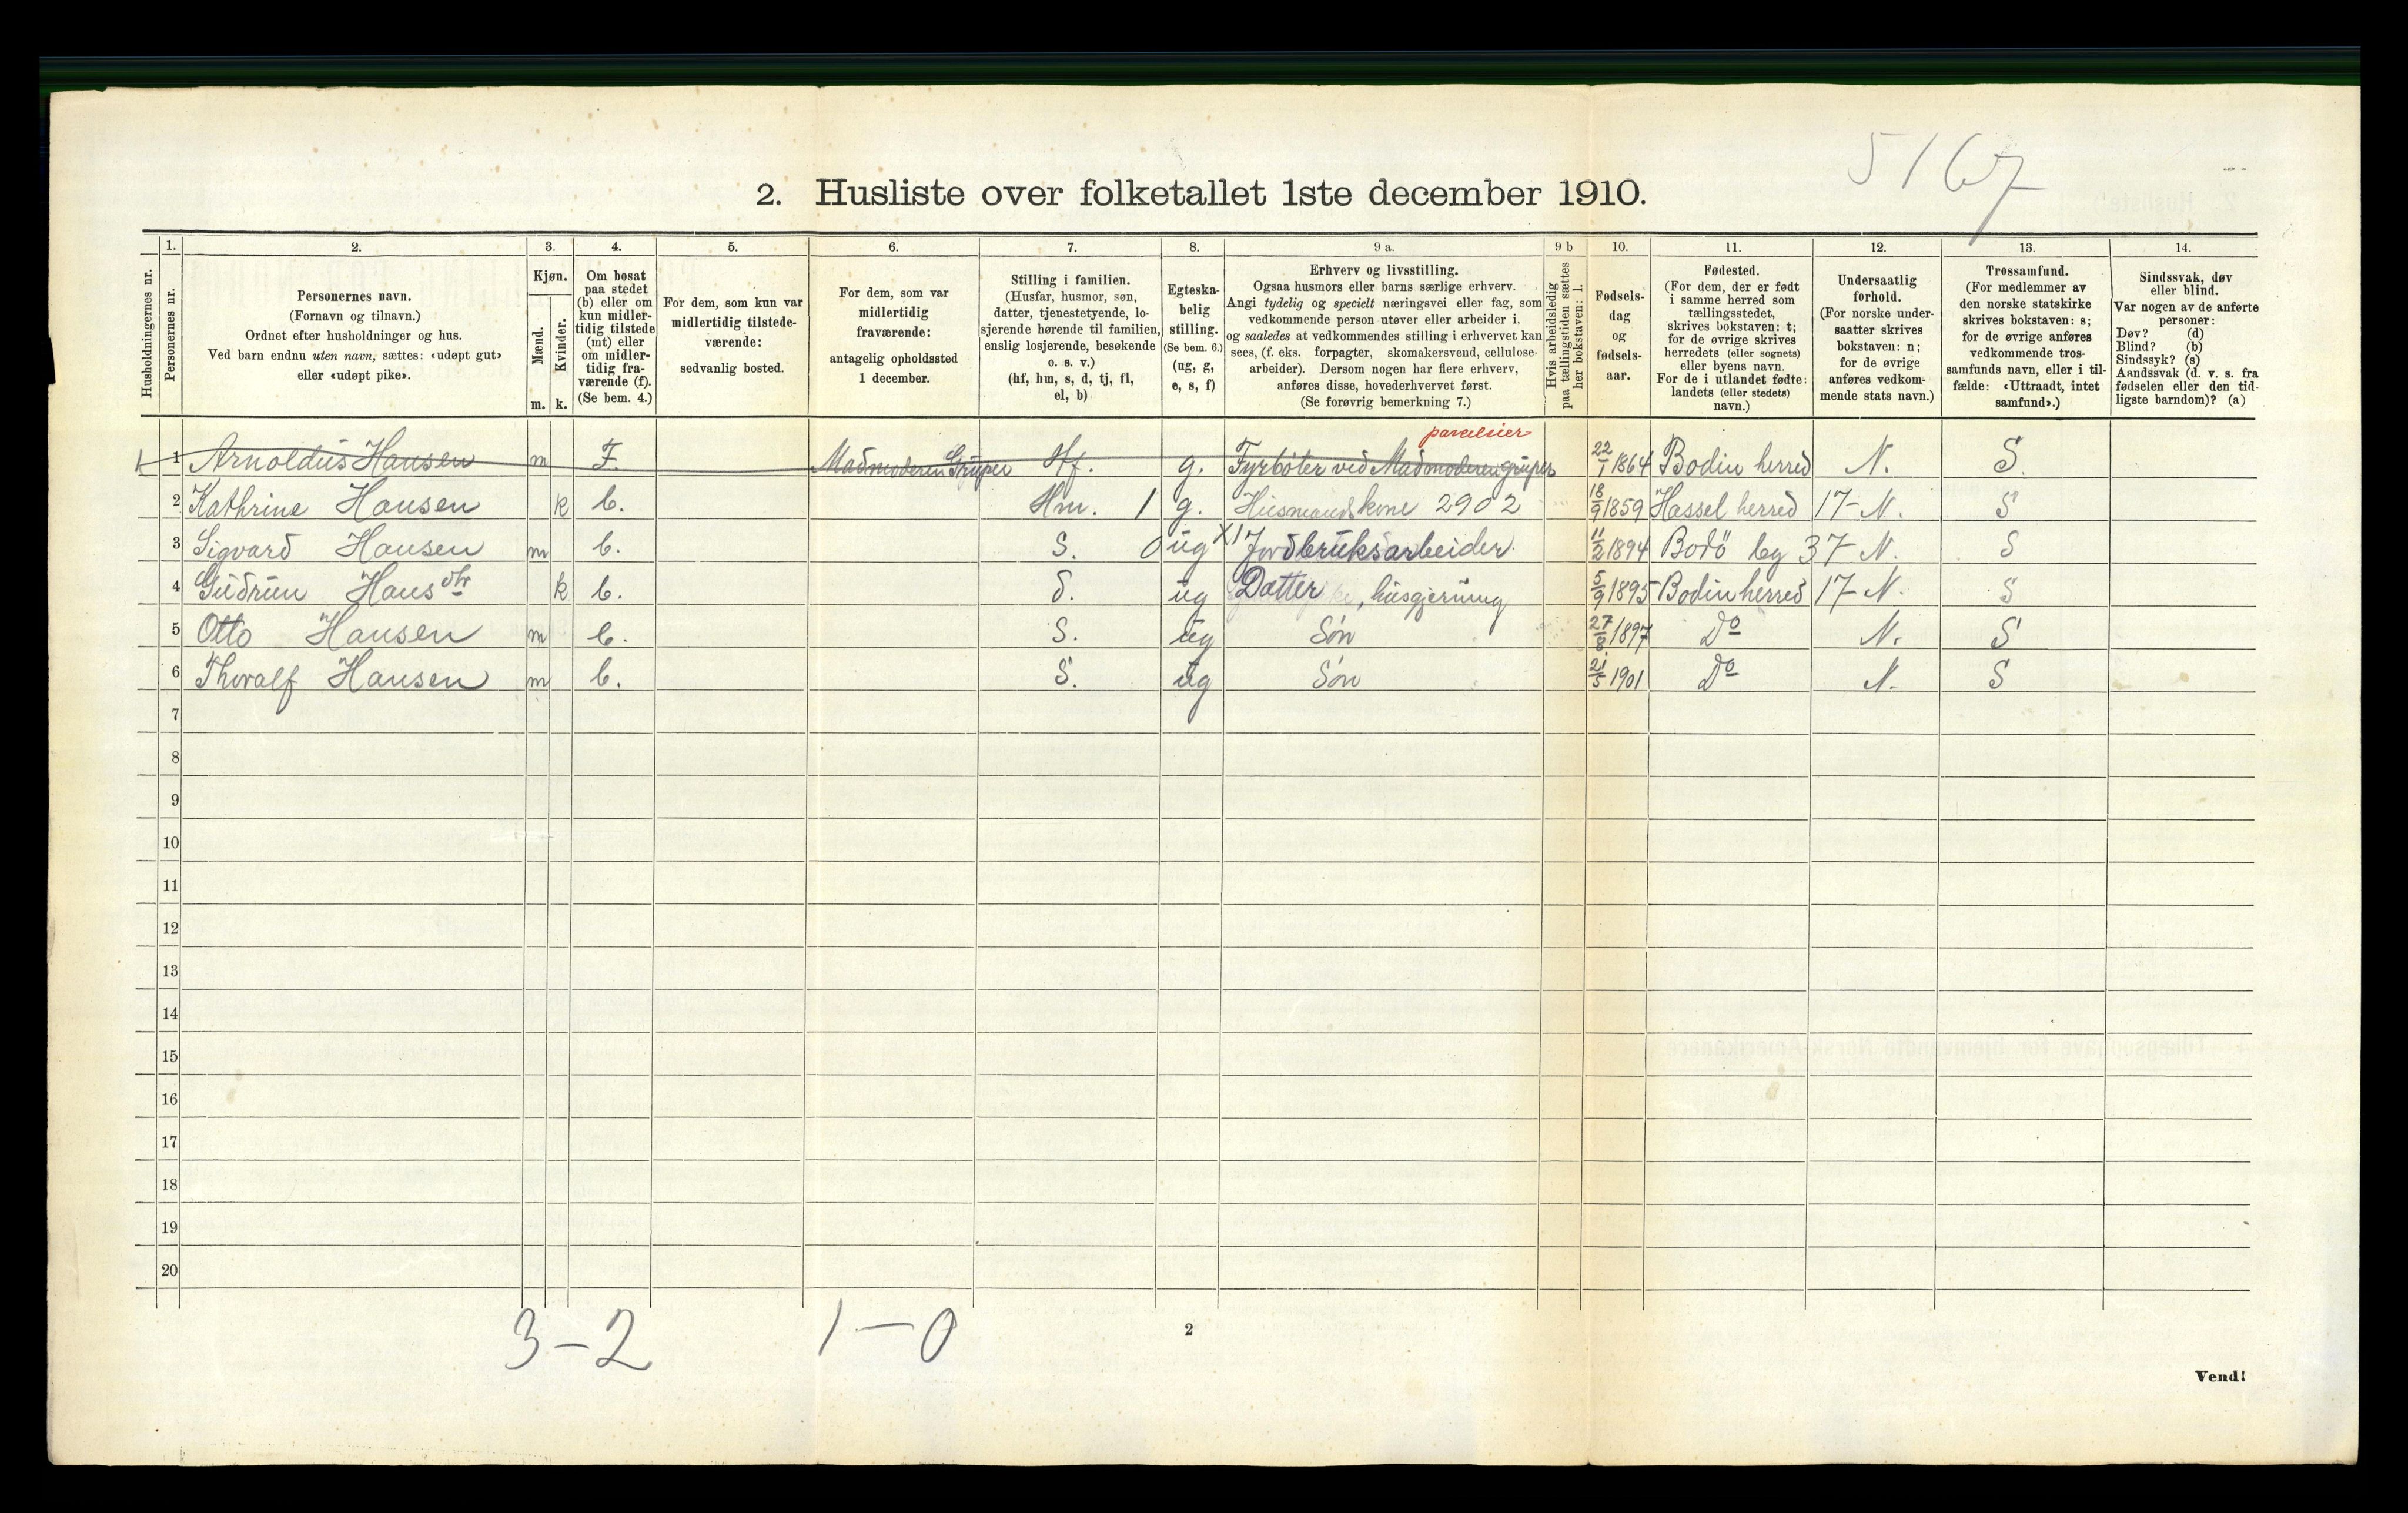 5167
2. Husliste over folketallet 1ste december 1910.
Husholdningernes nr.
1. Personernes nr.
2. Personernes navn.
(Fornavn og tilnavn.)
Ordnet efter husholdninger og hus.
Ved barn endnu uten navn, sættes: «udøpt gut»
eller «udøpt pike».
3. Kjøn.
Mænd. m.
Kvinder. k.
4. Om bosat
paa stedet
(b) eller om
kun midler-
tidig tilstede
(mt) eller
om midler-
tidig fra-
værende (f).
(Se bem. 4.)
5. For dem, som kun var
midlertidig tilstede-
værende:
sedvanlig bosted.
6. For dem, som var
midlertidig
fraværende:
antagelig opholdssted
1 december.
7. Stilling i familien.
(Husfar, husmor, søn,
datter, tjenestetyende, lo-
sjerende hørende til familien,
enslig losjerende, besøkende
o. s. v.)
(hf, hm, s, d, tj, fl,
el, b)
8. Egteska-
belig
stilling.
(Se bem. 6.)
(ug, g,
e, s, f)
9 a. Erhverv og livsstilling.
Ogsaa husmors eller barns særlige erhverv.
Angi tydelig og specielt næringsvei eller fag, som
vedkommende person utøver eller arbeider i,
og saaledes at vedkommendes stilling i erhvervet kan
sees, (f. eks. forpagter, skomakersvend, cellulose-
arbeider). Dersom nogen har flere erhverv,
anføres disse, hovederhvervet først.
(Se forøvrig bemerkning 7.)
9 b Hvis arbeidsledig
paa tællingstiden sættes
her bokstaven: l.
10. Fødsels-
dag
og
fødsels-
aar.
11. Fødested.
(For dem, der er født
i samme herred som
tællingsstedet,
skrives bokstaven: t;
for de øvrige skrives
herredets (eller sognets)
eller byens navn.
For de i utlandet fødte:
landets (eller stedets)
navn.)
12. Undersaatlig
forhold.
(For norske under-
saatter skrives
bokstaven: n;
for de øvrige
anføres vedkom-
mende stats navn.)
13. Trossamfund.
(For medlemmer av
den norske statskirke
skrives bokstaven: s;
for de øvrige anføres
vedkommende tros-
samfunds navn, eller i til-
fælde: «Uttraadt, intet
samfund».)
14. Sindssvak, døv
eller blind.
Var nogen av de anførte
personer:
Døv? (d)
Blind? (b)
Sindssyk? (s)
Aandssvak (d. v. s. fra
fødselen eller den tid-
ligste barndom)? (a)
parcelsier
1 Arnoldus Hansen m F. Madmoderen Gruper Hf. g. Fyrbøter ved Madmoderengruper 22/1 1864 Bodin herred N. S.
2 Kathrine Hansen k b. Hm. 1 g. Husmandskone 2902 18/9 1859 Hassel herred 17- N. S
3 Sigvard Hansen m b. S. 0 ug X1 Jordbruksarbeider. 11/2 1894 Bodö by 37- N. S
4 Gudrun Hansdtr k b. d. ug Datter , husgjerning 5/9 1895 Bodin herred 17- N. S
5 Otto Hansen m b. S. ug Sön 27/8 1897 Do N. S
6 Thoralf Hansen m b. S. ug Sön 21/5 1901 Do N. S
7
8
9
10
11
12
13
14
15
16
17
18
19
20
3-2 1-0
2
Vend!